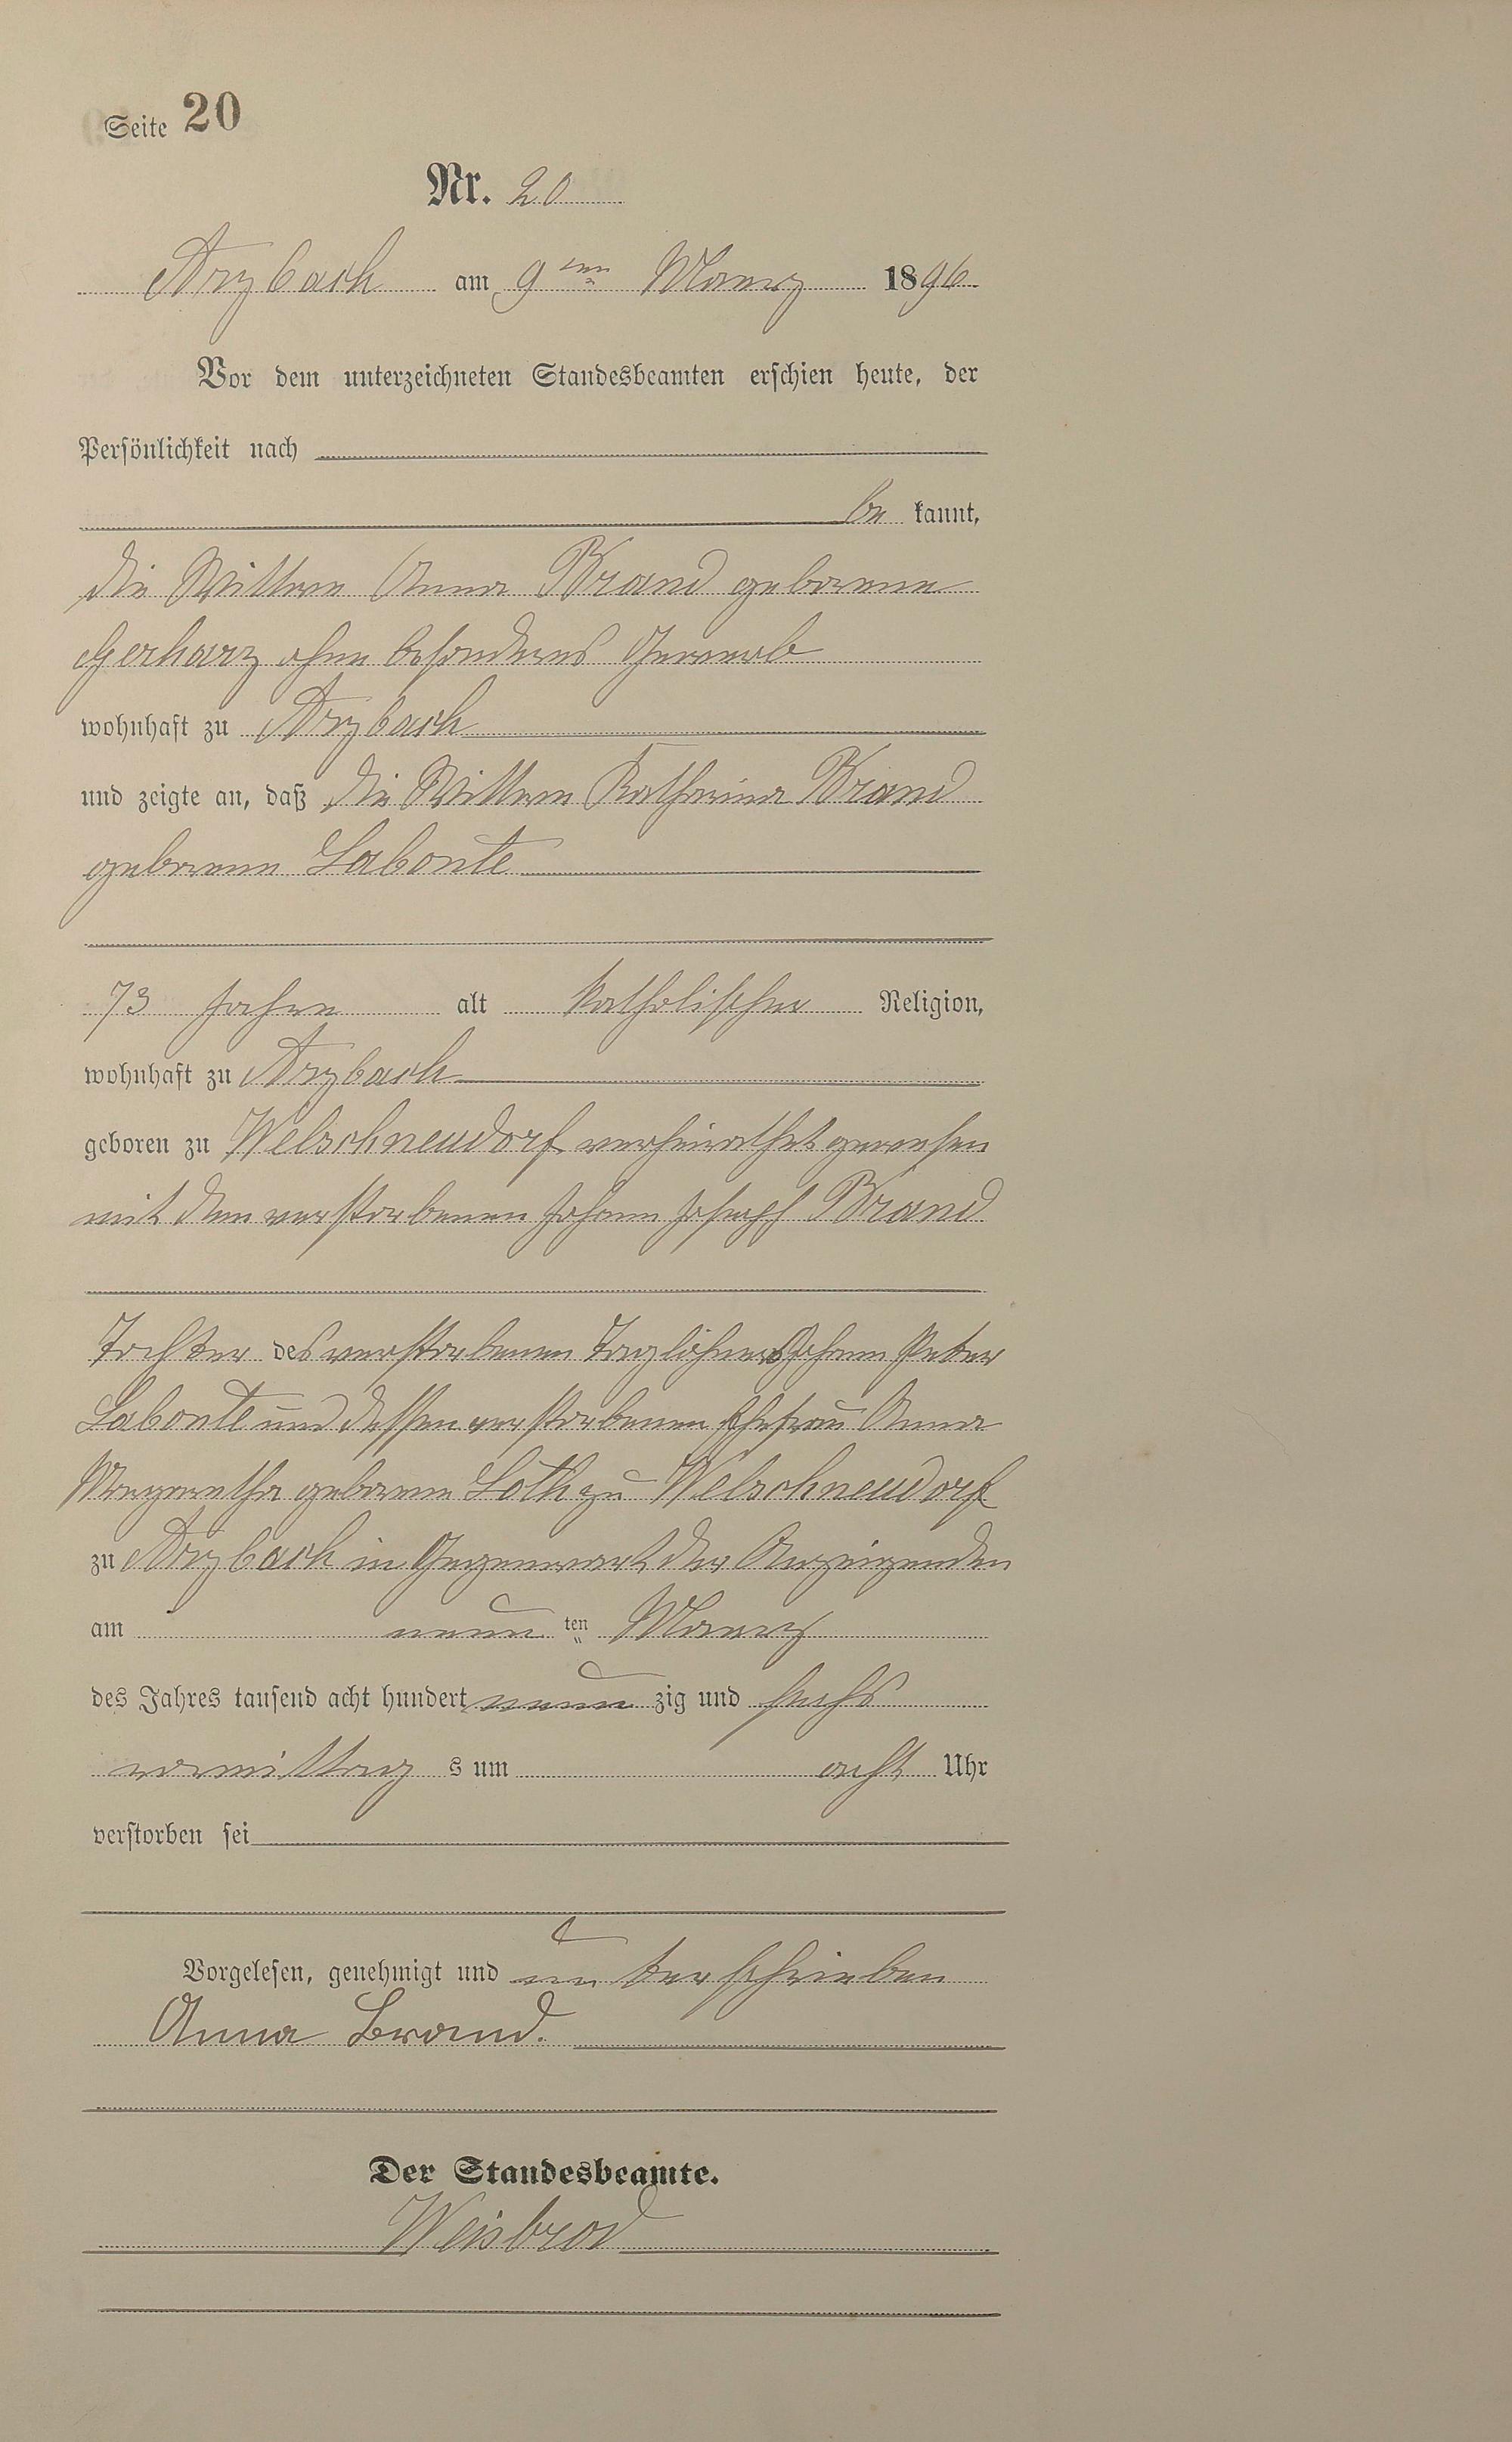 Seite 20
Nr. 20
Arzbach am 9ten Maerz 1896
Vor dem unterzeichneten Standesbeamten erschien heute, der
Persönlichkeit nach
be kannt,
die Wittwe Anna Brand geborene
Gerharz ohne besonderes Gewerbe
wohnhaft zu Arzbach
und zeigte an, daß die Wittwe Katharina Brand
geborene Labonte
73 Jahre alt katholischer Religion,
wohnhaft zu Arzbach
geboren zu Welschneudorf verheirathet gewesen
mit dem verstorbenen Johann Joseph Brand
Tochter des verstorbenen Taglöhners Johann Peter
Labonte und dessen verstorbenen Ehefrau Anna
Margaretha geborene Löth zu Welschneudorf
zu Arzbach in Gegenwart der Anzeigenden
am neun ten Maerz
des Jahres tausend acht hundert neun zig und sechs
vormittag s um acht Uhr
verstorben sei
Vorgelesen, genehmigt und unterschrieben
Anna Brand.
Der Standesbeamte.
Weisbrod